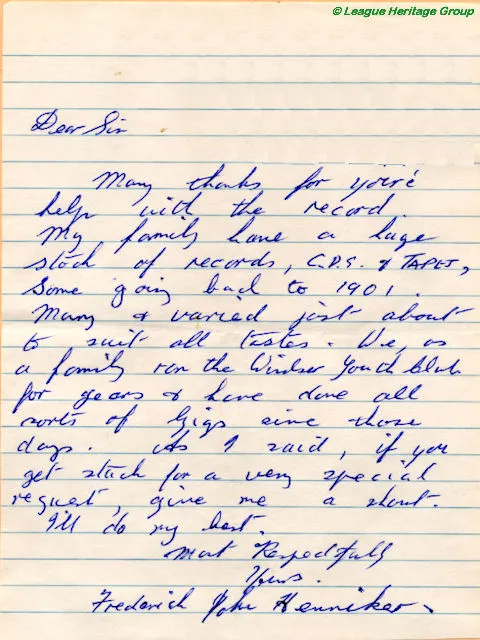 © League Heritage Group
Dear Sir
Many thanks for youre'
help with the record.
My family have a huge
stock of records, C.D.S. & TAPES,
Some going back to 1901.
Many & varied just about
to suit all tastes. We, as
a family ran the Windsor Youth Club
for years & have done all
sorts of Gigs since those
days. As I said, if you
get stuck for a very special
request, give me a shout.
I'll do my best.
Most Respectfully
Yours.
Frederick John Henniker